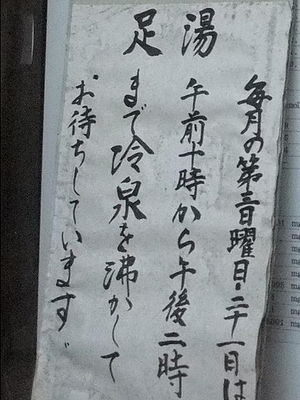 足湯
毎月の第三日曜日・二十一日は
午前十時から午後二時
まで冷泉を沸かして
お待ちしています。